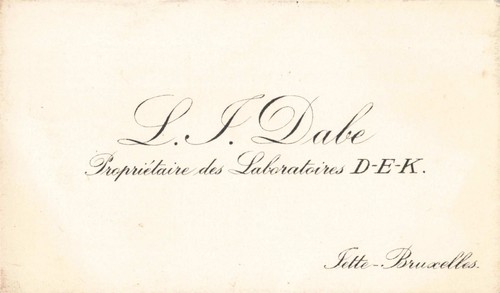 L. J. Dabe
Propriétaire des Laboratoires D-E-K.
Jette-Bruxelles.